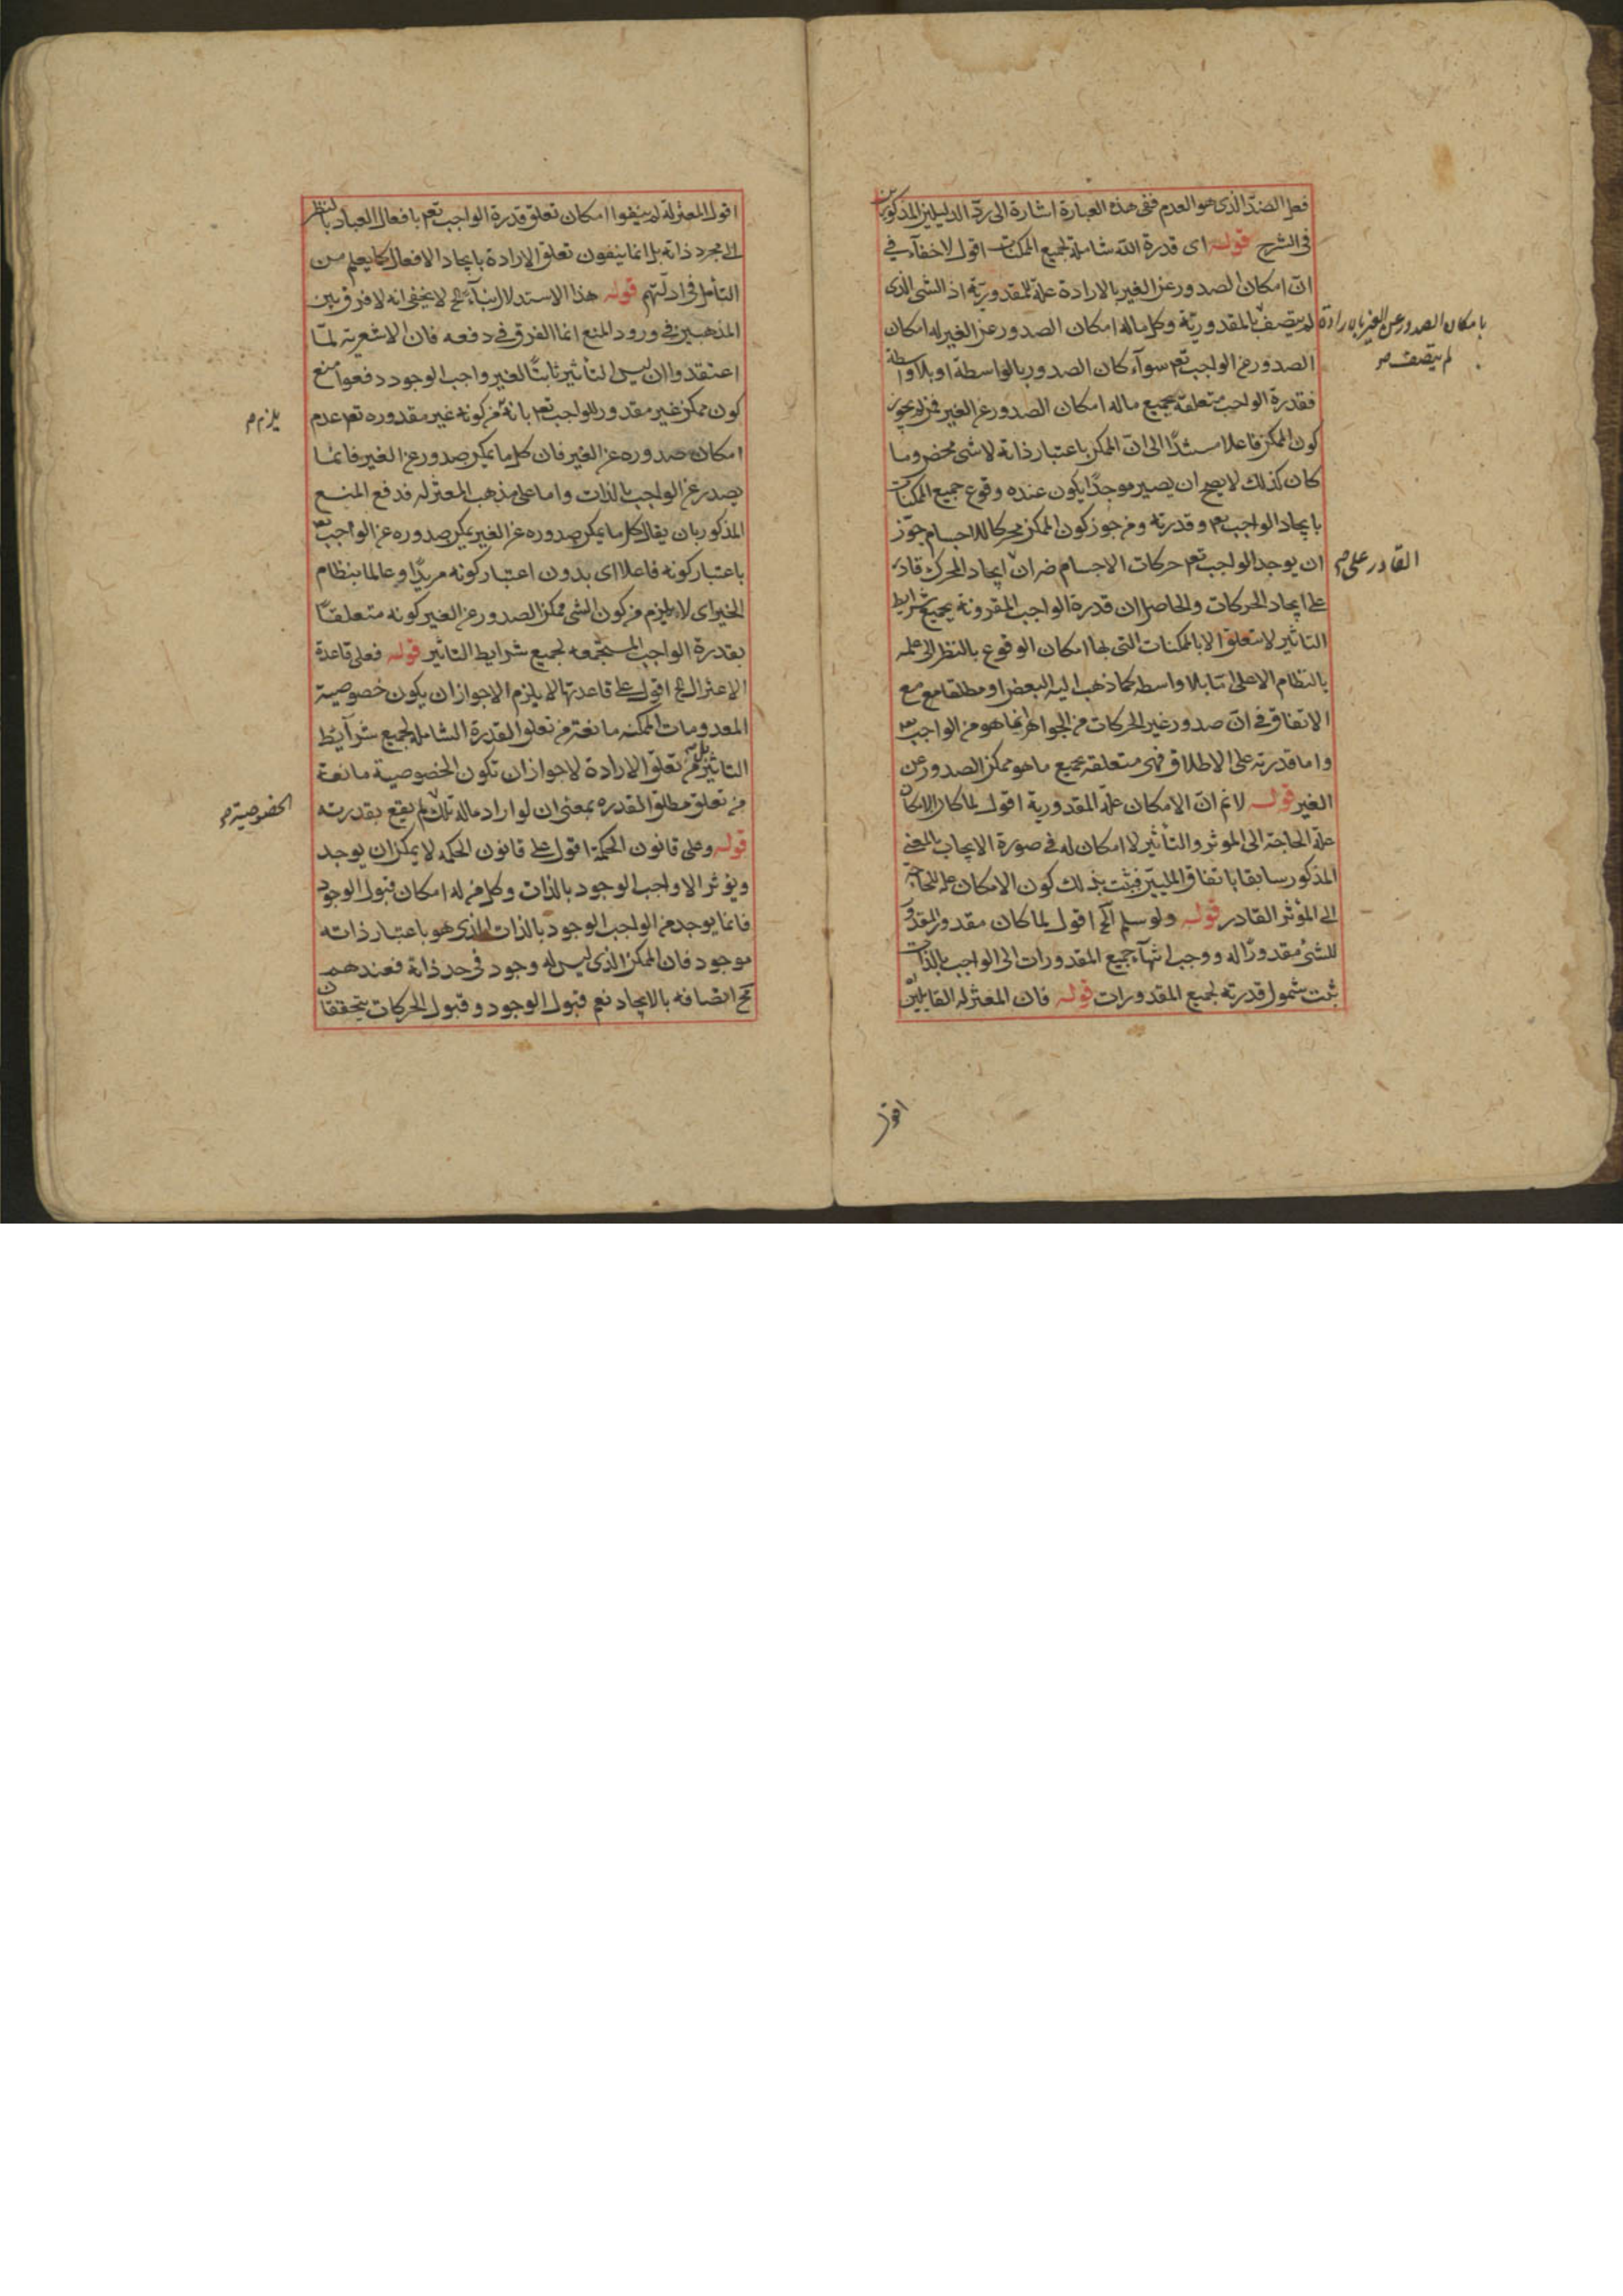 فعل الضد الذى هو العدم ففى هذه العبارة اشارة الى رد الدليلين المذكورين
فى الشرح قوله اى قدرة الله شاملة لجميع الممكنات اقول لا خفآء فى
ان امكان الصدور عن الغير بالارادة علة للمقدورية اذ الشى الذى
لم يتصف بالمقدورية وكل ماله امكان الصدور عن الغير له امكان
بامكان الصدور عن الغير بالارادة
لم يتصف صح
الصدور عن الواجب تعم سوآء كان الصدور بالواسطة او بلا واسطة
فقدرة الواجب متعلقة بجميع ماله امكان الصدور عن الغير فمن لم يجوز
كون الممكن فاعلا مستندًا الى ان الممكن باعتبار ذاته لا شى محض وما
كان كذلك لا يصح ان يصير موجدًا يكون عنده وقوع جميع الممكنات
بايجاد الواجب تعم وقدرته ومن جوز كون الممكن محركا للاجسام جوّز
ان يوجد الواجب تعم حركات الاجسام ضران ايجاد المحرك قادر
القادر على م
على ايجاد الحركات والحاصل ان قدرة الواجب المقرونة بجميع شرايط
التاثير لا تتعلق الا بالممكنات التى لها امكان الوقوع بالنظر الى علمه
بالنظام الاعلى اما بلا واسطه كما ذهب اليه البعض او مطلقا مع
الاتفاق فى ان صدور غير الحركات من الجواهر انما هو من الواجب تعم
واما قدرته على الاطلاق فهى متعلقه بجميع ما هو ممكن الصدور عن
الغير قوله لا نم ان الامكان علة المقدورية اقول لما كان الامكان
علة الحاجة الى الموثر والتأثير لا امكان له فى صورة الايجاب بالمعنى
المذكور سابقا باتفاق المليين فثبت بذلك كون الامكان علة للحاجة
الى المؤثر القادر قوله ولو سلم آلخ اقول لما كان مقدور المقدور
للشئ مقدورًا له ووجب انتهآء جميع المقدورات الى الواجب بالذات
ثبت شمول قدرته لجميع المقدورات قوله فان المعتزله القايلين
اقول
اقول المعتزلة لم ينفوا امكان تعلق قدرة الواجب تعم بافعال العباد بالنظر
الى مجرد ذاته بل انما ينفون تعلق الارادة بايجاد الافعال كما يعلم من
التأمل فى ادلتهم قوله هذا الاستدلال بناءً الخ لا يخفى انه لا فرق بين
المذهبين فى ورود المنع انما الفرق فى دفعه فان الاشعرية لمّا
اعتقدوا ان ليس التأثير ثابتًا لغير واجب الوجود دفعوا منع
كون ممكن غير مقدور للواجب تعم بانه من كونه غير مقدوره تعم عدم
يلزم م
امكان صدوره عن الغير فان كل ما يمكن صدوره عن الغير فانما
يصدر عن الواجب بالذات واما على مذهب المعتزله فدفع المنع
المذكور بان يقال كل ما يمكن صدوره عن الغير يمكن صدوره عن الواجب تعم
باعتبار كونه فاعلا اى بدون اعتبار كونه مريدًا وعالما بنظام
الخير اى لا يلزم من كون الشى ممكن الصدور عن الغير كونه متعلقًا
بقدرة الواجب المستجمعه لجميع شرايط التاثير قوله فعلى قاعدة
الاعتزال الخ اقول على قاعدتها لا يلزم الا جواز ان يكون خصوصية
المعدومات الممكنه مانعة من تعلق القدرة الشاملة لجميع شرآيط
التاثير تعلق الارادة لا جواز ان تكون الخصوصية مانعة
من تعلق مطلق القدره بمعنى ان لو اراد ماله تلك لم يقع بقدرته
الخصوصية م
قوله وعلى قانون الحكمة اقول على قانون الحكمه لا يمكن ان يوجد
ويؤثر الا واجب الوجود بالذات وكل من له امكان قبول الوجود
فانما يوجد من الواجب الوجود بالذات الذى هو باعتبار ذاته
موجود فان الممكن الذى ليس له وجود فى حد ذاته فعندهم
اتصافه بالايجاد نعم قبول الوجود وقبول الحركات يتحققان